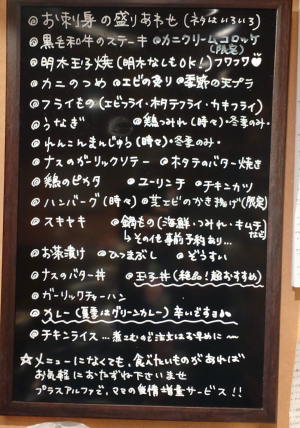 @お刺身の盛りあわせ(ネタはいろいろ)
@黒毛和牛のステーキ @カニクリームコロッケ(限定)
@明太玉子焼(明太なしもOK!)フワフワ♥
@カニのつめ @エビの炙り @季節の天プラ
@フライもの(エビフライ・ホタテフライ・カキフライ)
@うなぎ @鶏つみれ(時々)・冬季のみ・
@れんこんまんじゅう(時々)・冬季のみ・
@ナスのガーリックソテー @ホタテのバター焼き
@鶏のピカタ @ユーリンチ @チキンカツ
@ハンバーグ(時々) @芝エビのかき揚げ(限定)
@スキヤキ @鍋もの(海鮮・つみれ・キムチなど)
↳その他も事前予約あり...
@お茶漬け @ひつまぶし @ぞうすい
@ナスのバター丼 @玉子丼(絶品!超おすすめ)
@ガーリックチャーハン
@カレー(夏季はグリーンカレー)辛いですョ
@チキンライス...煮こむのご注文はお早めに〜
☆メニューになくても、食べたいものがあれば
お気軽におたずね下さいませ
プラスアルファで、ママの無償増量サービス!!